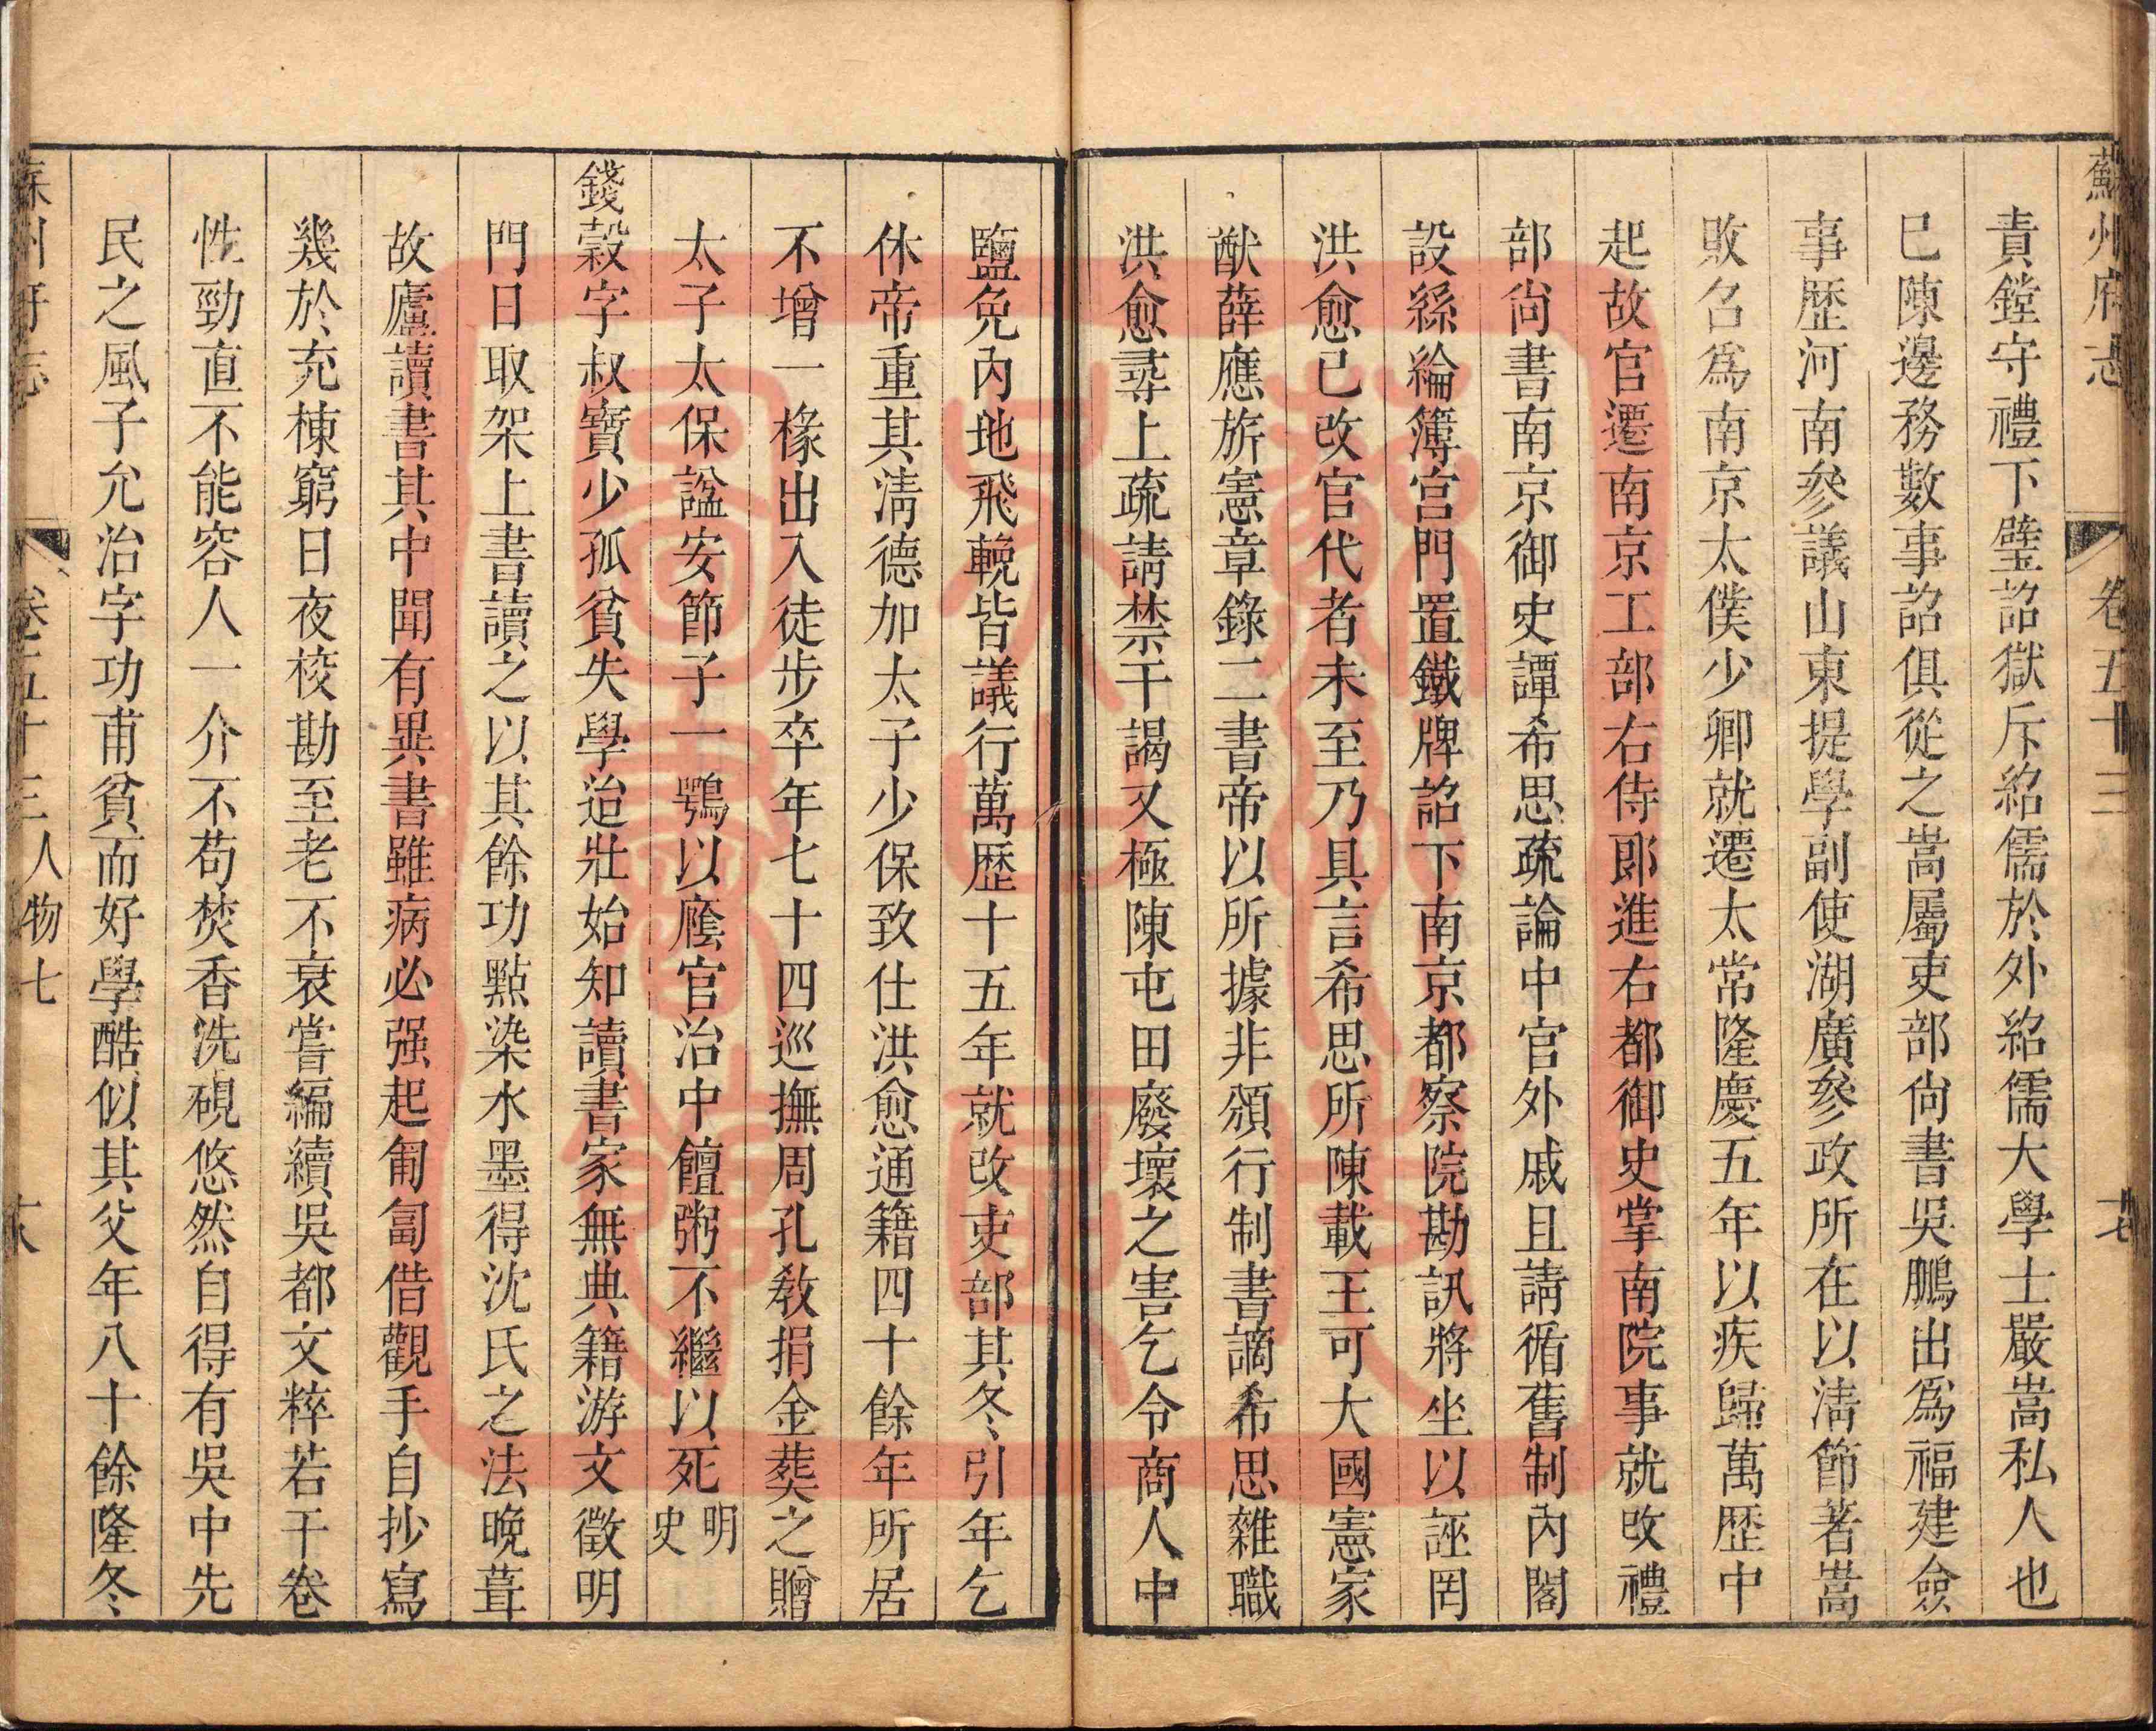 蘇州府志 卷五十三 七
責鏜守禮下璧詔獄斥紹儒於外紹儒大學士嚴嵩私人也
已陳邊務數事詔俱從之嵩屬吏部尚書吳鵬出爲福建僉
事歷河南參議山東提學副使湖廣參政所在以淸節著嵩
敗召爲南京太僕少卿就遷太常隆慶五年以疾歸萬歷中
起故官遷南京工部右侍郎進右都御史掌南院事就改禮
部尚書南京御史譚希思疏論中官外戚且請循舊制內閣
設絲綸簿宮門置鐵牌詔下南京都察院勘訊將坐以誣罔
洪愈已改官代者未至乃具言希思所陳載王可大國憲家
猷薛應旂憲章錄二書帝以所據非頒行制書謫希思雜職
洪愈尋上疏請禁干謁又極陳屯田廢壞之害乞令商人中
鹽免內地飛輓皆議行萬歷十五年就改吏部其冬引年乞
休帝重其淸德加太子少保致仕洪愈通籍四十餘年所居
不增一椽出入徒步卒年七十四巡撫周孔敎捐金葬之贈
太子太保諡安節子一鶚以廕官治中饘粥不繼以死明史
錢穀字叔寶少孤貧失學迨壯始知讀書家無典籍游文徵明
門日取架上書讀之以其餘功點染水墨得沈氏之法晚葺
故廬讀書其中聞有異書雖病必强起匍匐借觀手自抄寫
幾於充棟窮日夜校勘至老不衰嘗編續吳都文粹若干卷
性勁直不能容人一介不苟焚香洗硯悠然自得有吳中先
民之風子允治字功甫貧而好學酷似其父年八十餘隆冬
蘇州府志 卷五十三 人物七